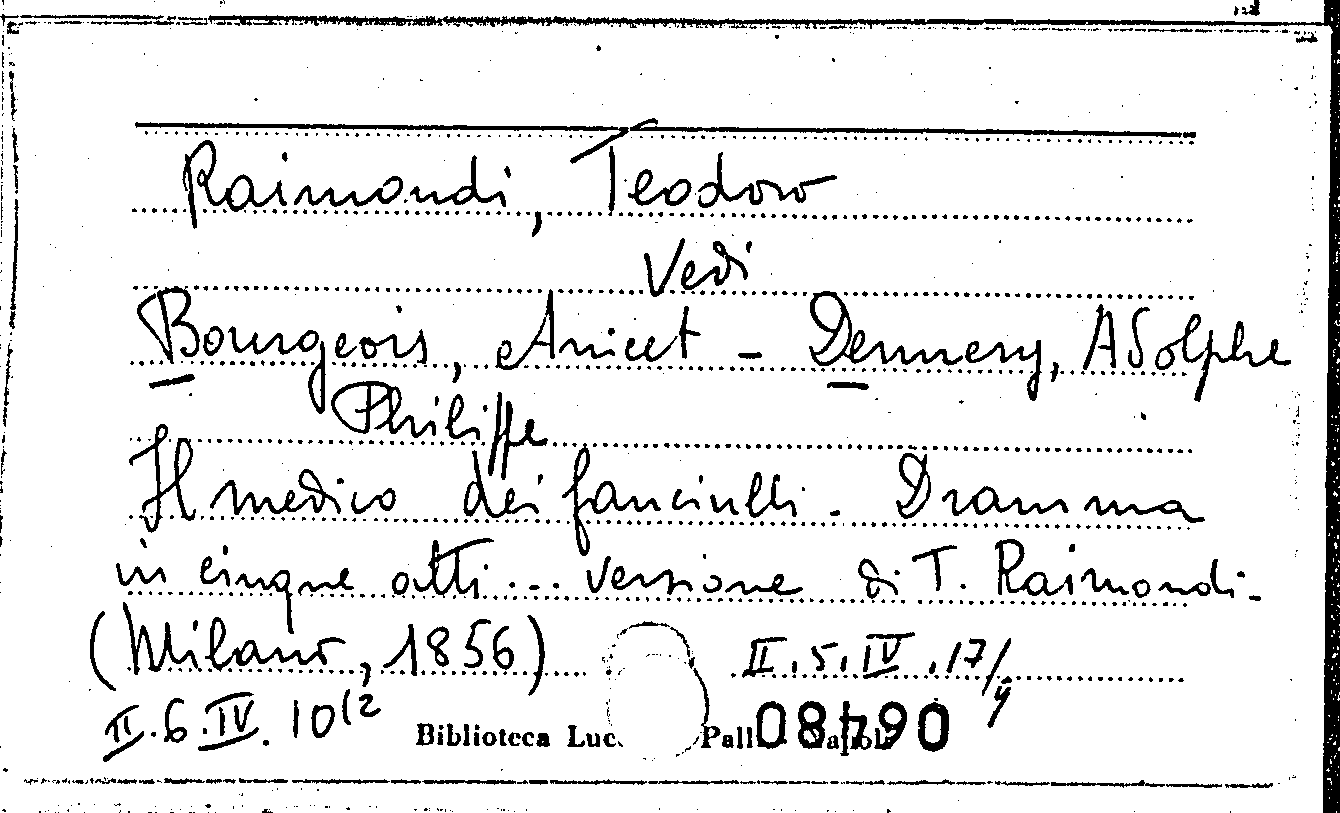 Raimondi, Teodoro
Vedi
Bourgeois, Anicet - Dennery, Adolphe
Philippe
Il medico dei fanciulli. Dramma
in cinque atti... versione di T. Raimondi-
(Milano, 1856) II.5.IV.17/4
II.6.IV.10(2 Biblioteca Luc. Pall. 08490